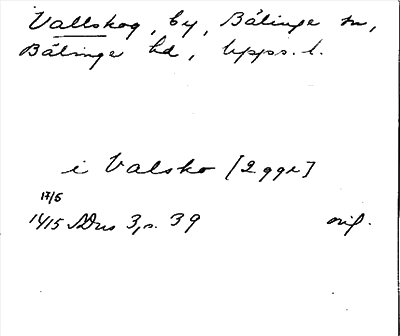 Vallskog, by, Bälinge sn,
Bälinge hd, Upps. l.
i Valsko [2 ggr]
17/6
1415 SDns 3, s. 39 orig.